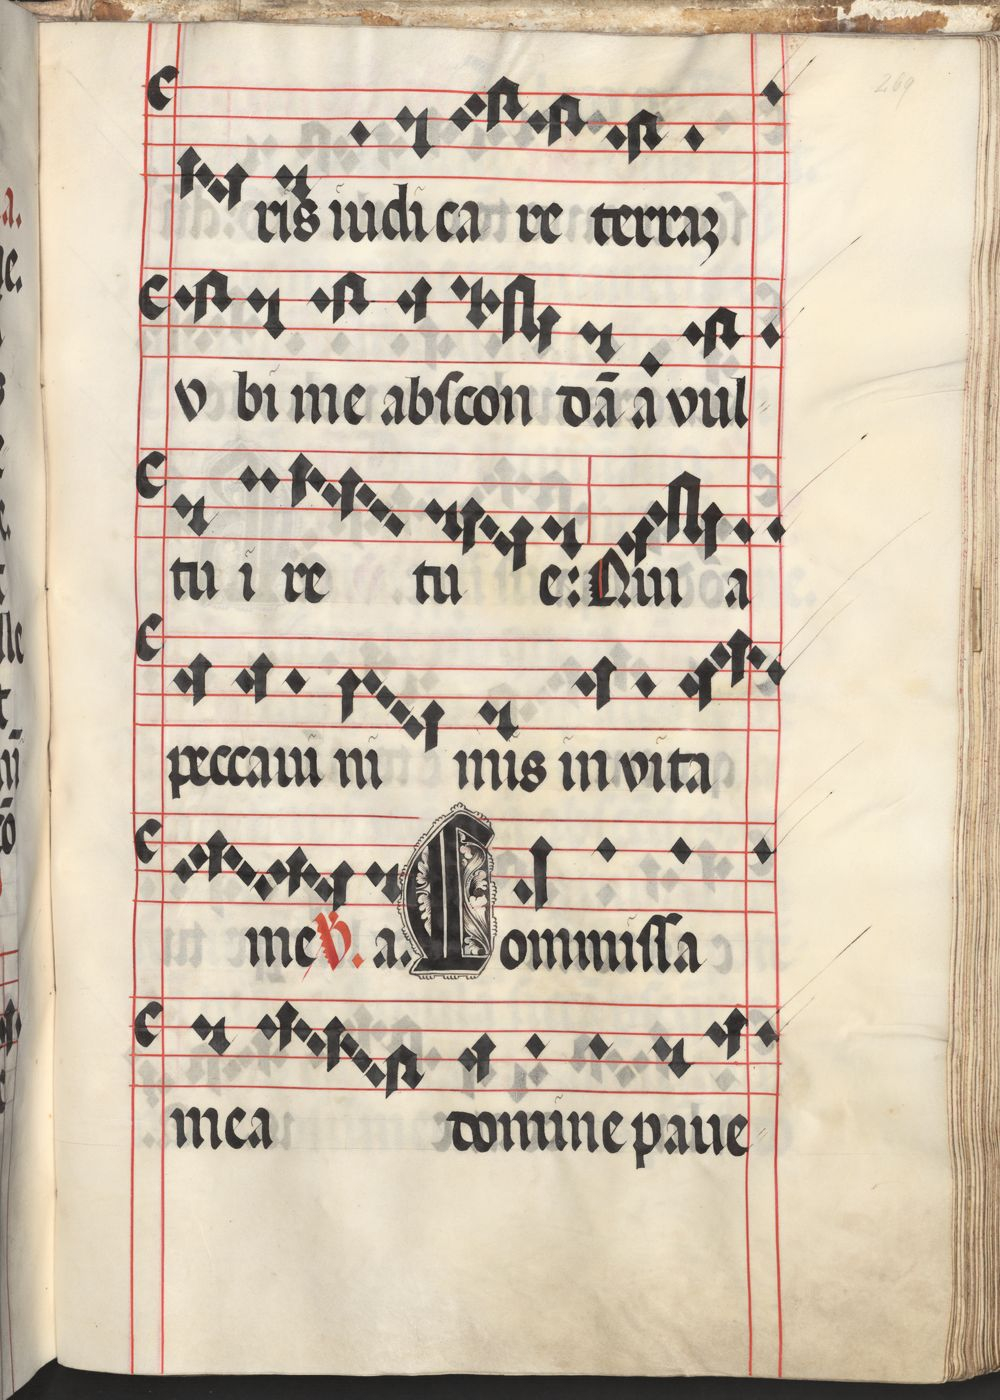 269
ris iudi ca re terraʒ
v bi me abscon dā a vul
tu i re tu e: Quia
peccaui ni mis in vita
me ℣. a. Commissa
mea domine paue